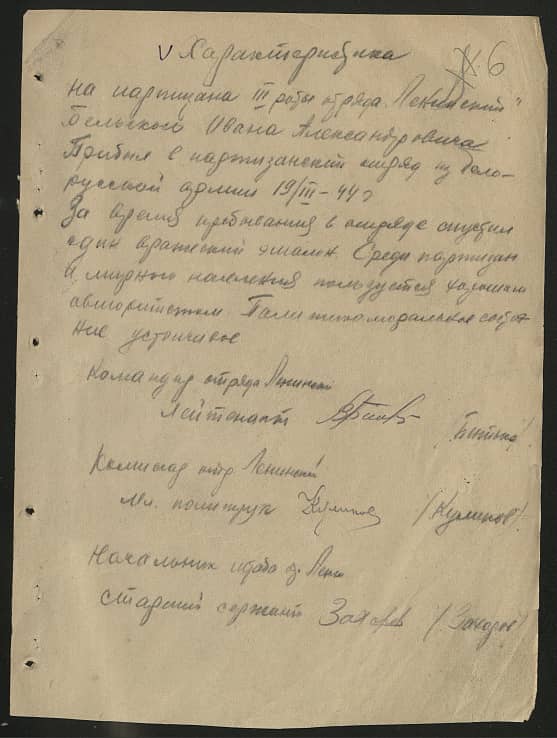 V Характеристика
Ж.6
на партизана III роты отряда "Ленинский"
Бельского Ивана Александровича
Прибыл в партизанский отряд из Бело-
русской армии 19/III-44г
За время пребывания в отряде спустил
один вражеский эшалон. Среди партизан
и мирного населения пользуется хорошим
авторитетом. Политикоморальное состоя-
ние устойчивое
Командир отряда Ленинский
Лейтенант
Комиссар отр Ленинский
Мл. политрук Куликов /Куликов/
Начальник штаба о. Лени
Старший сержант